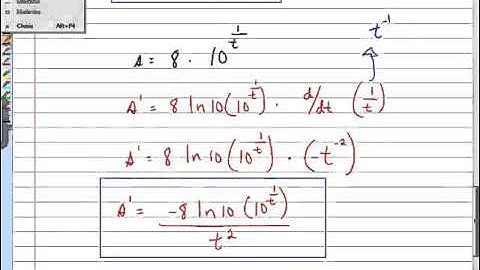 Close Alt+F4
t^{-1}
s = 8 · 10^{1/t}
s' = 8 ln 10 (10^{1/t}) · d/dt (1/t)
s' = 8 ln 10 (10^{1/t}) · (-t^{-2})
s' = -8 ln 10 (10^{1/t}) / t^2